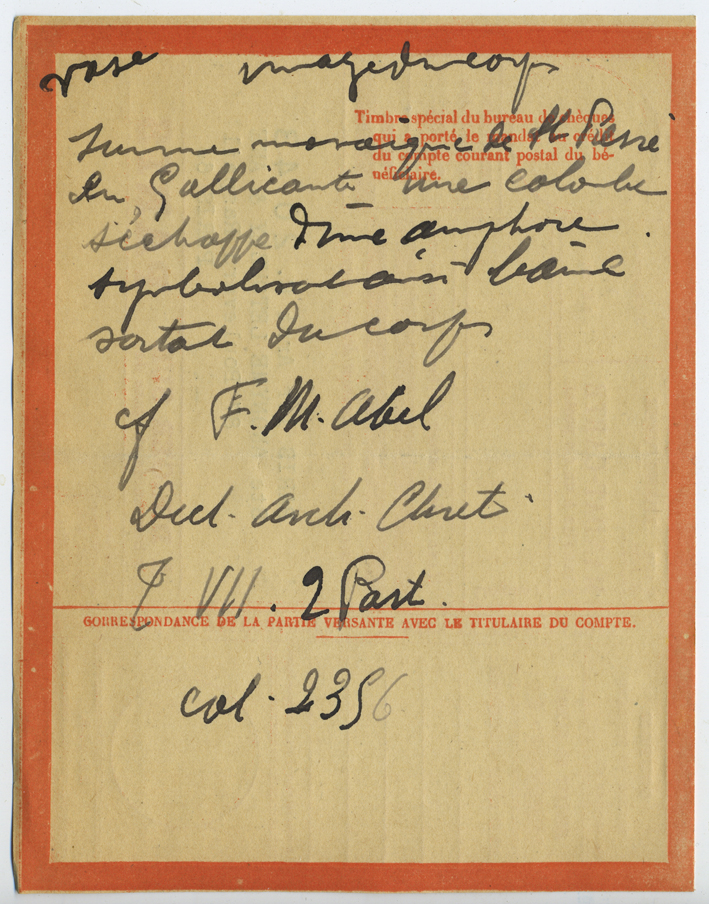 vase image du corps
Timbre spécial du bureau de chèques
qui a porté le mandat au crédit
du compte courant postal du bé-
néficiaire.
sur une mosaïque de St Pierre
En Gallicante une colobe
s'échappe d'une amphore.
symbolisant ainsi l'âme
sortat du corps
cf F. M. Abel
Dict. Arch. Chret.
T VII. 2 Part.
CORRESPONDANCE DE LA PARTIE VERSANTE AVEC LE TITULAIRE DU COMPTE.
col. 2356